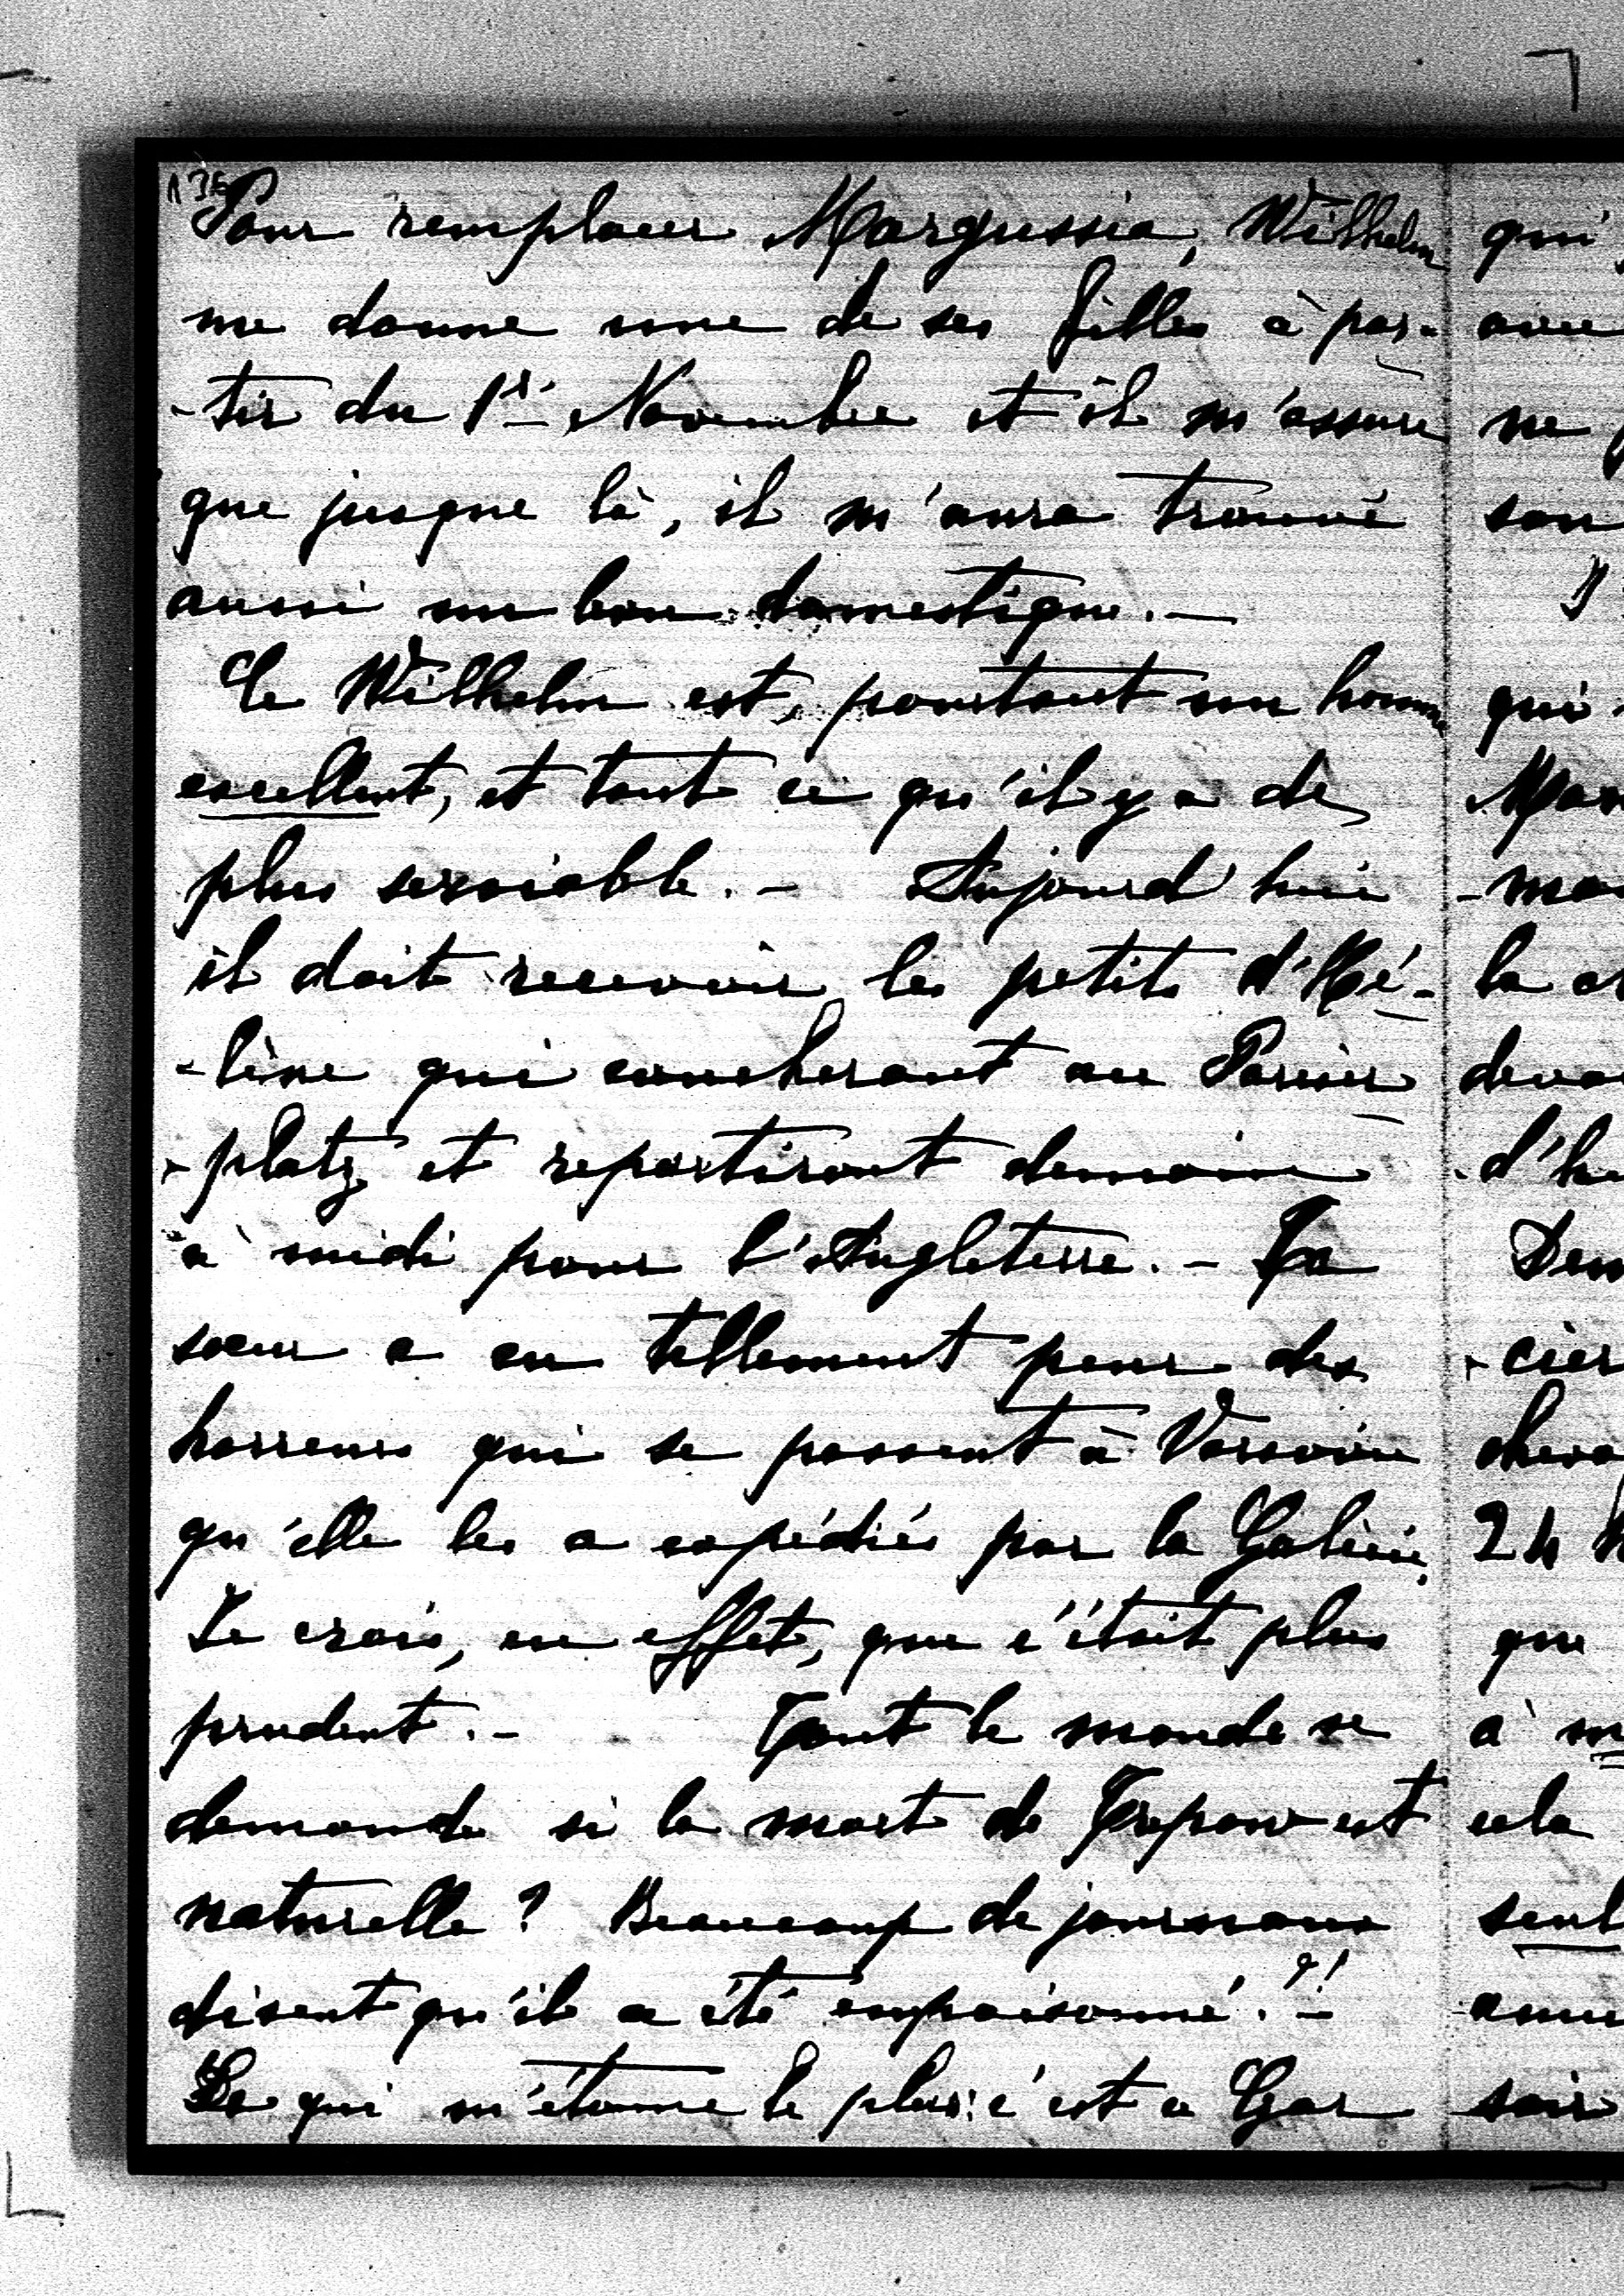 136
Pour remplacer Margussia, Wilhelm
me donne une de ses filles à par-
-tir du 1er Novembre et il m'assure
que jusque là, il m'aura trouvé
aussi un bon domestique. —
Ce Wilhelm est, pourtant un homme
excellent, et tout ce qu'il y a de
plus serviable. - Aujourd'hui
il doit recevoir les petits d'Hé-
-lène qui coucheront au Pariser
-platz et repartiront demain
à midi pour l'Angleterre. - Ta
sœur a eu tellement peur des
horreurs qui se passent à Varsovie
qu'elle les a expédiés par la Galicie.
Je crois, en effet, que c'était plus
prudent. - Tout le monde se
demande si la mort de Trepow est
naturelle ? Beaucoup de journaux
disent qu'il a été empoisonné. ?! -
Ce qui m'étonne le plus: c'est ce Czar
qui
ne
son
qui
la
Dem
-cier
24
que
à
cela
seul
soir